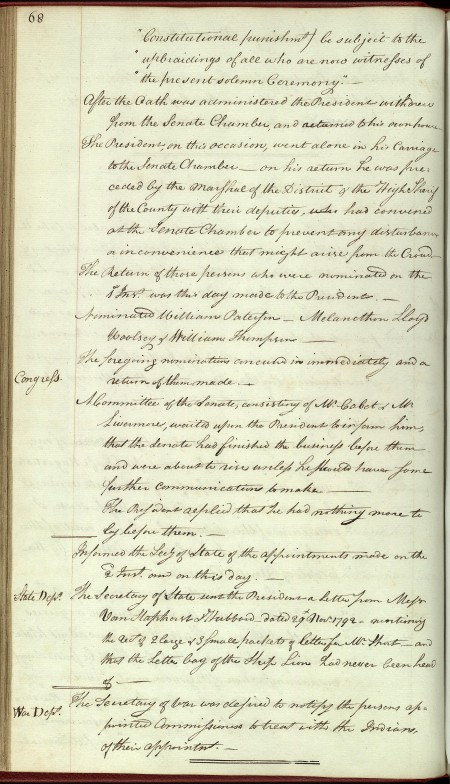 68
"Constitutional punishmt) be subject to the
"upbraidings of all who are now witnesses of
"the present solemn Ceremony." —
After the Oath was administered the President withdrew
from the Senate Chamber, and returned to his own house
The President, on this occasion, went alone in his Carriage
to the Senate Chamber — on his return he was pre-
ceded by the Marshal of the District & the High Sherif
of the County with their deputies, who had convened
at the Senate Chamber to prevent any disturbance
or inconvenience that might arise from the Crowd
The Return of those persons who were nominated on the
Inst. was this day made to the President. —
Nominated William Paterson — Melancthon Lloyd
Woolsey & William Thompson —
The foregoing nominations concurred in immediately and a
Congress. return of them made. —
A Committee of the Senate, consisting of Mr. Cabot & Mr.
Livermore, waited upon the President to inform him,
that the Senate had finished the business before them
and were about to rise unless he should have some
further communications to make. —
The President replied that he had nothing more to
lay before them. —
Informed the Secy of State of the appointments made on the
2 Inst. and on this day. —
State Dept. The Secretary of State sent the President a Letter from Messrs
Van Staphorst & Hubbard dated 29 Novr. 1792 — mentioning
the rect. of 2 large & 3 small packets of letters for Mr. Short — and
that the Letter bag of the Ship Lion had never been heard
of —
War Dept. The Secretary of War was desired to notify the persons ap-
pointed Commissioners to treat with the Indians,
of their appointmt. —